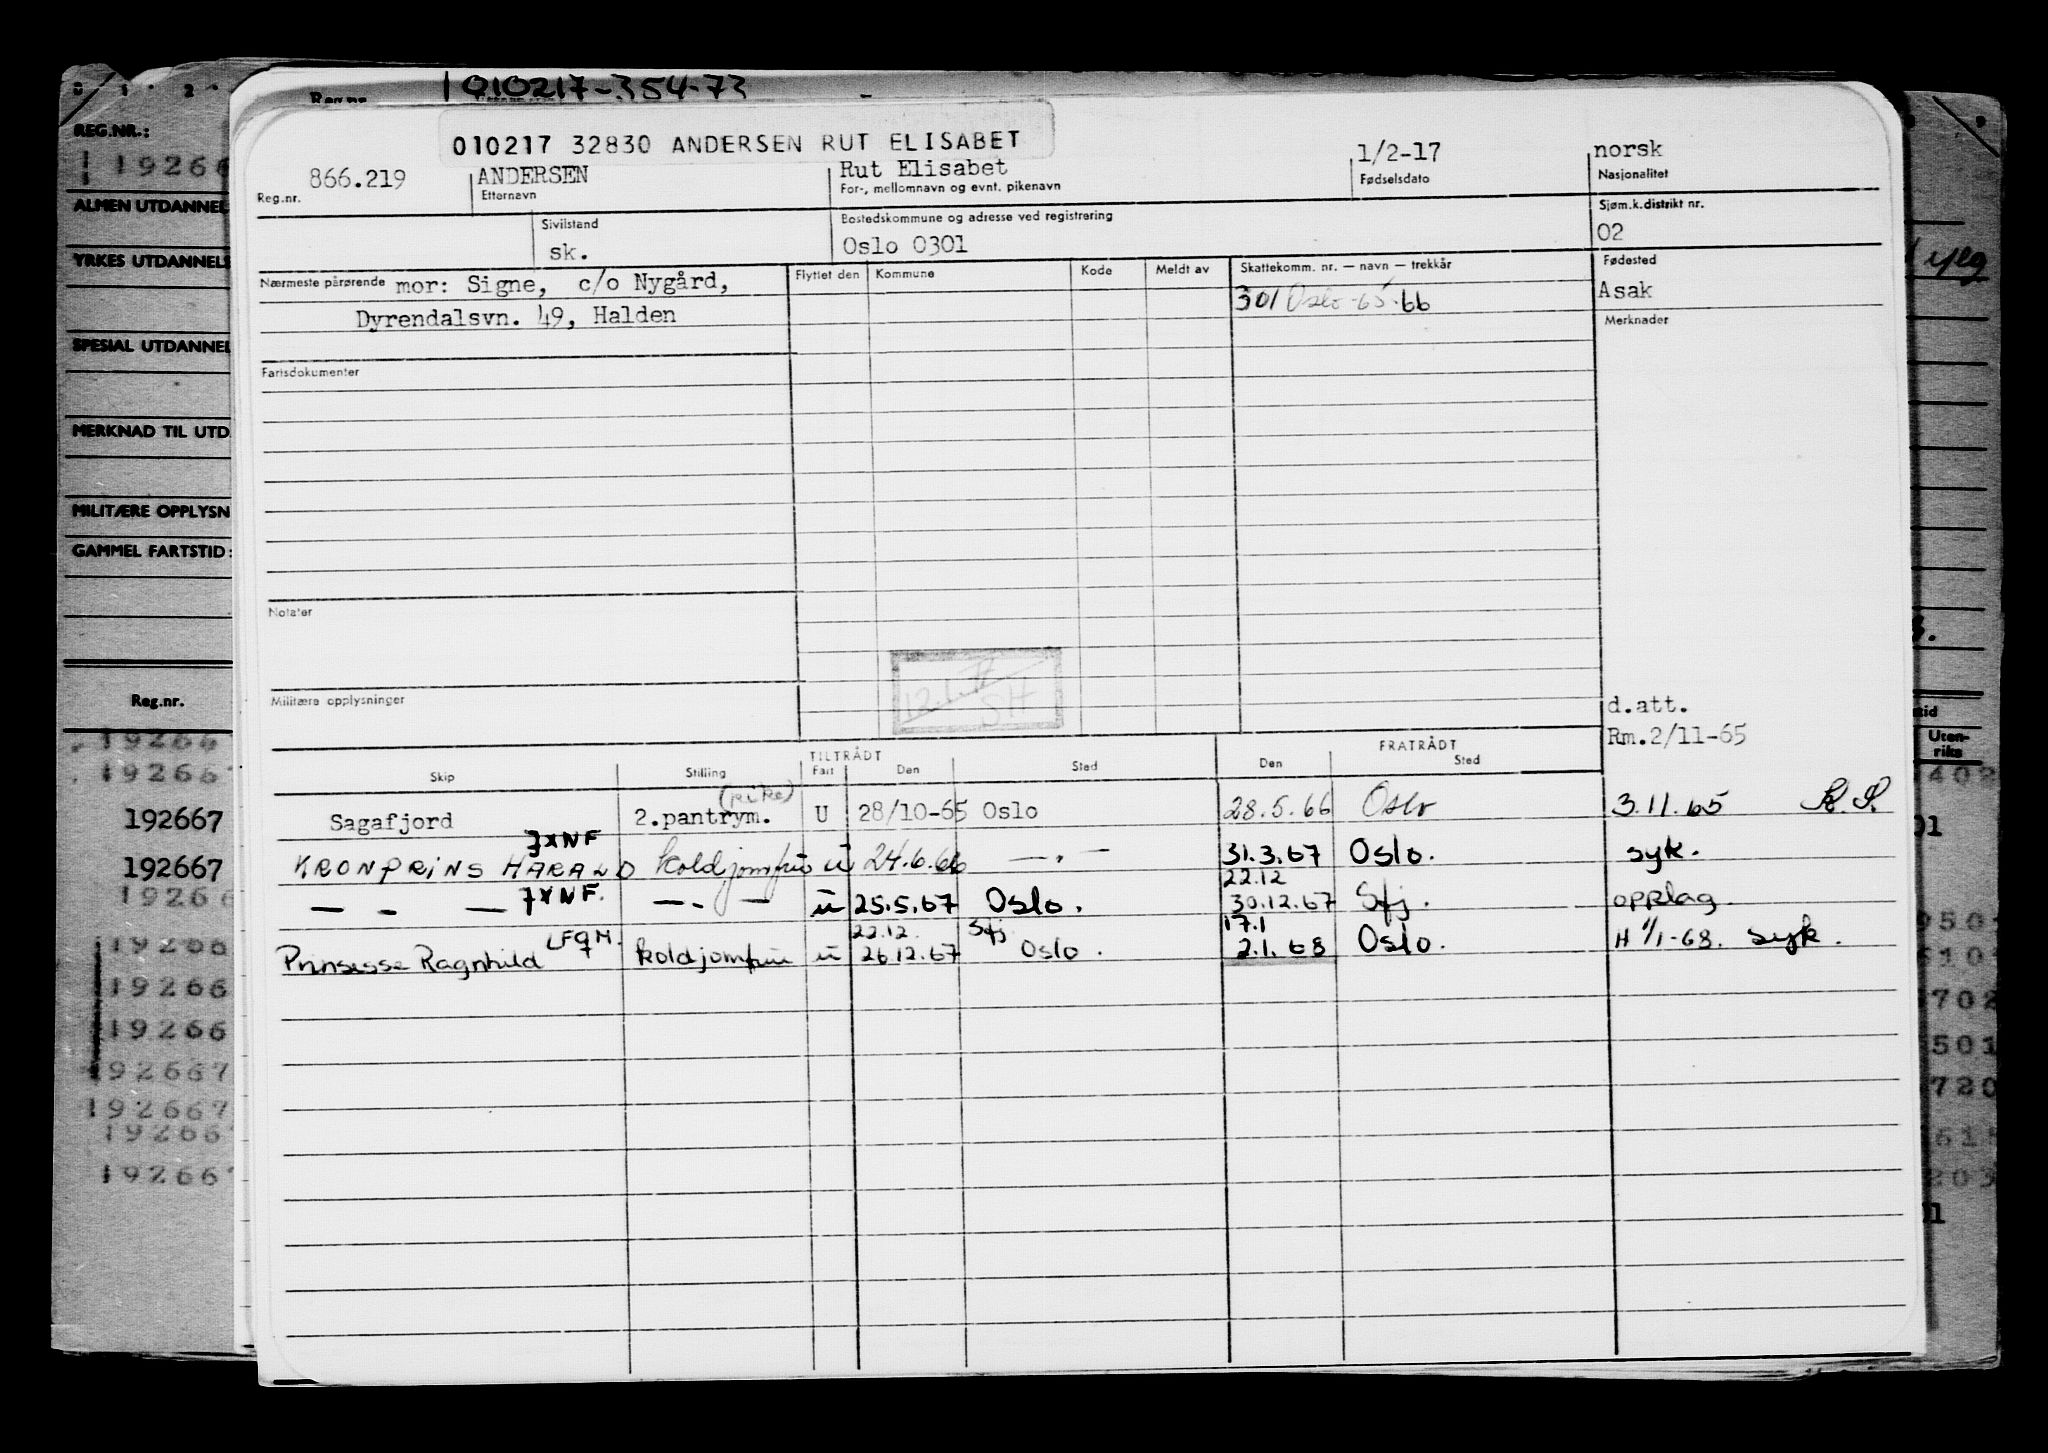 010217-354-73
010217 32830 ANDERSEN RUT ELISABET
866.219 ANDERSEN Rut Elisabet 1/2-17 norsk
Reg.nr. Etternavn For-, mellomnavn og evnt. pikenavn Fødselsdato Nasjonalitet
Sivilstand Bostedskommune og adresse ved registrering Sjøm.k.distrikt nr.
sk. Oslo 0301 02
Nærmeste pårørende mor: Signe, c/o Nygård, Flyttet den Kommune Kode Meldt av Skattekomm. nr. — navn — trekkår Fødested
Dyrendalsvn. 49, Halden 301 Oslo-65-66 Asak
Merknader
Fartsdokumenter
Notater
12.1.7 SH
Militære opplysninger d.att.
Rm.2/11-65
TILTRÅDT FRATRÅDT
Skip Stilling Fart Den Sted Den Sted
(pike)
Sagafjord 2.pantrym. U 28/10-65 Oslo 28.5.66 Oslo 3.11.65 K.S.
JXNF
KRONPRINS HARALD koldjomfru u 24.6.66 —„— 31.3.67 Oslo. syk.
22.12
— - — JXNF. —.- — u 25.5.67 Oslo. 30.12.67 Sfj. opplag
22.12. Sfj 17.1
Prinsesse Ragnhild LFQM. koldjomfru u 26.12.67 Oslo. 2.1.68 Oslo. H 1/1-68. syk.
REG.NR.:
19266
ALMEN UTDANNEL
YRKES UTDANNELS
SPESIAL UTDANNEL
MERKNAD TIL UTD
MILITÆRE OPPLYSN
GAMMEL FARTSTID:
Reg.nr.
19266
192667
192667
192667
19266
19266
19266
19266
192667
192667
19266
192667
tid
Uten-
riks
402
01
501
702
501
720
203